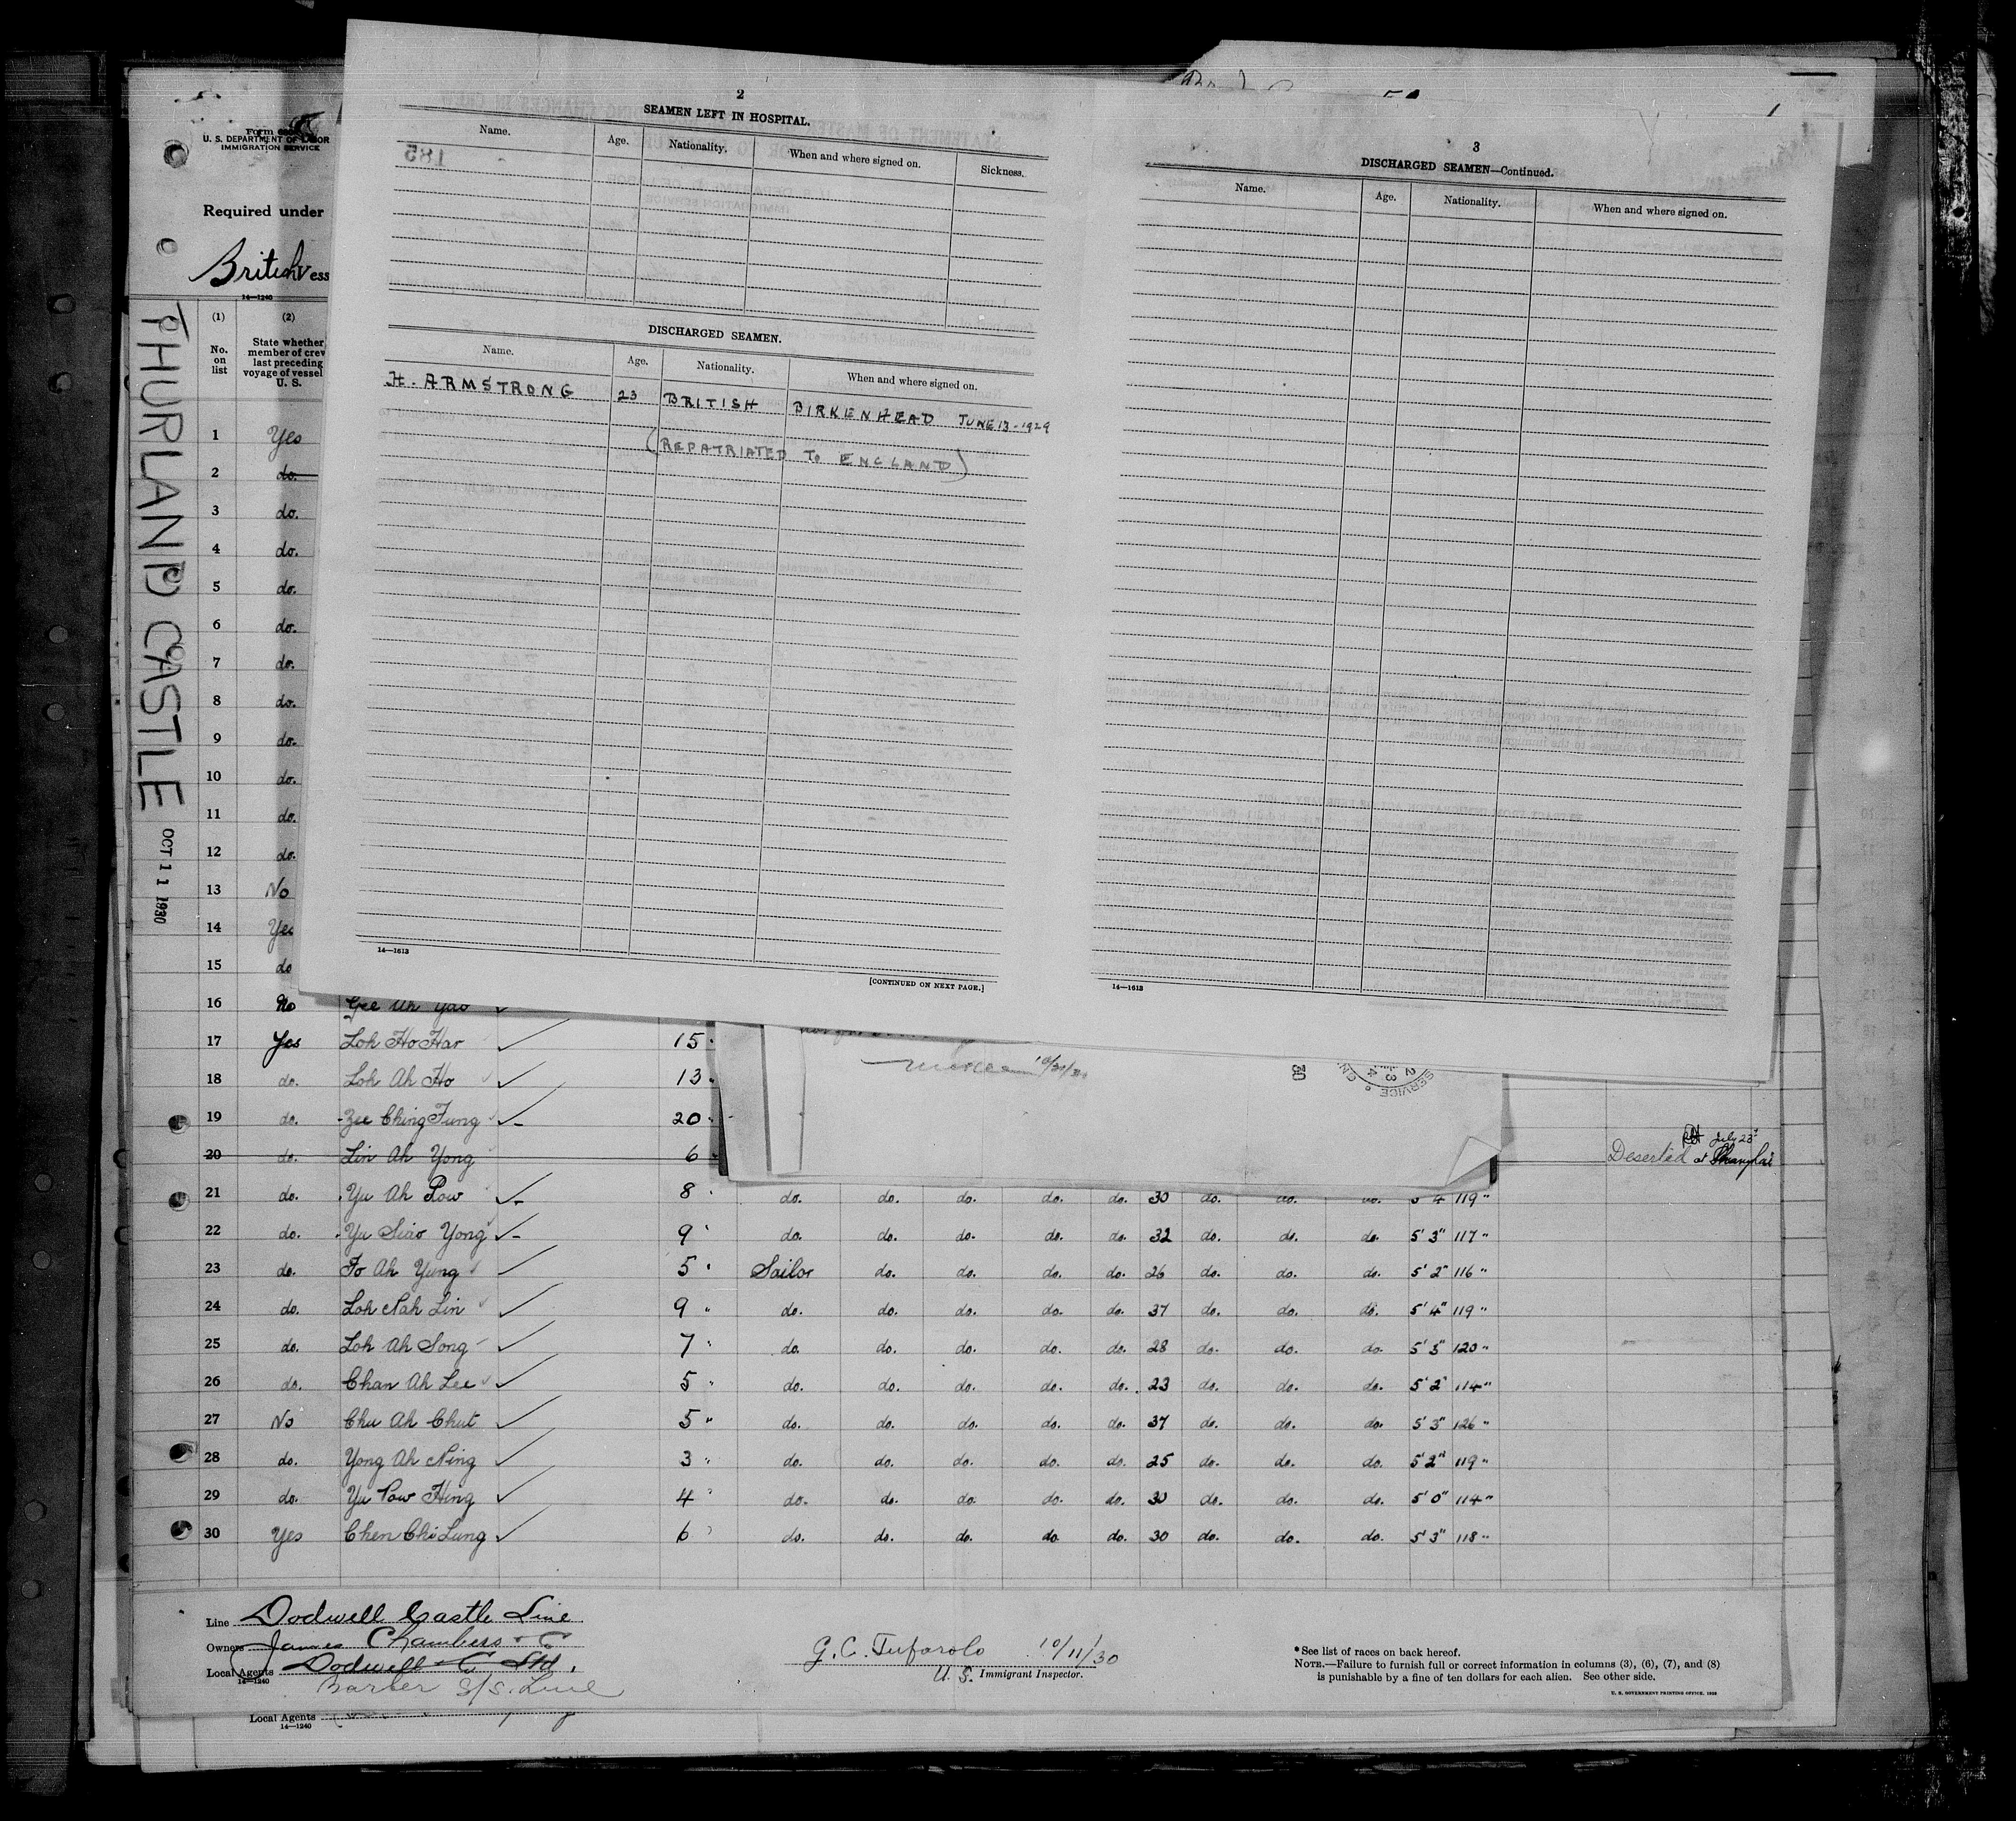 2
SEAMEN LEFT IN HOSPITAL.
Name. Age. Nationality. When and where signed on. Sickness.
DISCHARGED SEAMEN.
Name. Age. Nationality. When and where signed on.
H. ARMSTRONG 23 BRITISH BIRKENHEAD JUNE 13-1929
(REPATRIATED To ENGLAND)
14—1613
[CONTINUED ON NEXT PAGE.]
3
DISCHARGED SEAMEN—Continued.
Name. Age. Nationality. When and where signed on.
14—1613
Form
U. S. DEPARTMENT OF LABOR
IMMIGRATION SERVICE
Required under
British Vess
14—1240
THURLAND CASTLE
OCT 11 1930
(1) (2)
No. on list
State whether member of crew last preceding voyage of vessel U. S.
1 Yes
2 do.
3 do.
4 do.
5 do.
6 do.
7 do.
8 do.
9 do.
10 do.
11 do.
12 do.
13 No
14 Yes
15 do
16 No Gee Uh Yao
17 Yes Loh Ho Har 15
18 do. Loh Ah Ho 13
19 do. Zee Ching Fung 20
20 do. Lin Ah Yong 6 Deserted at Shanghai July 23
21 do. Yu Ah Pow 8 do. do. do. do. do. 30 do. do. do. 5' 4 119"
22 do. Yu Siao Yong 9 do. do. do. do. do. 32 do. do. do. 5' 3" 117"
23 do. Fo Ah Yung 5 Sailor do. do. do. do. 26 do. do. do. 5' 2" 116"
24 do. Loh Nah Lin 9 do. do. do. do. do. 37 do. do. do. 5' 4" 119"
25 do. Loh Ah Song 7 do. do. do. do. do. 28 do. do. do. 5' 3" 120"
26 do. Chan Ah Lee 5 do. do. do. do. do. 23 do. do. do. 5' 2" 114"
27 No Chu Ah Chut 5 do. do. do. do. do. 37 do. do. do. 5' 3" 126"
28 do. Yong Ah Ning 3 do. do. do. do. do. 25 do. do. do. 5' 2" 119"
29 do. Yu Pow Hing 4 do. do. do. do. do. 30 do. do. do. 5' 0" 114"
30 Yes Chen Chi Lung 6 do. do. do. do. do. 30 do. do. do. 5' 3" 118"
10/31/30
30
SERVICE
Line Dodwell Castle Line
Owners James Chambers & Co
Local Agents Dodwell & Co Ltd.
14—1240
Barber S/S. Line
G. C. Tuforolo 10/11/30
U. S. Immigrant Inspector.
* See list of races on back hereof.
NOTE.—Failure to furnish full or correct information in columns (3), (6), (7), and (8)
is punishable by a fine of ten dollars for each alien. See other side.
U. S. GOVERNMENT PRINTING OFFICE. 1928
Local Agents
14—1240